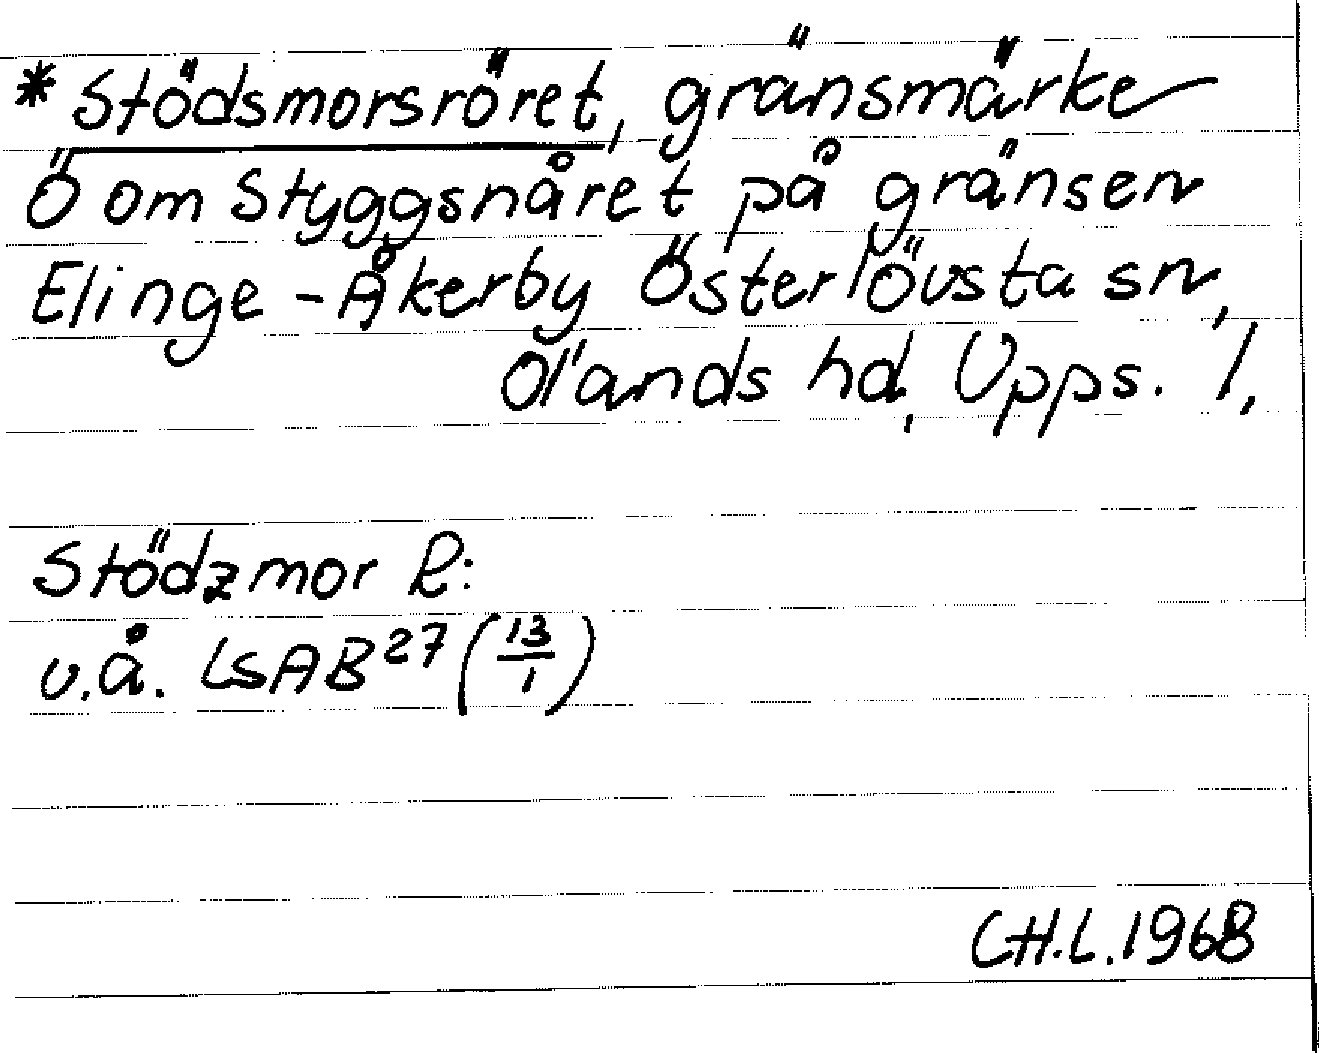 *Stödsmorsröret, gränsmärke
Ö om Styggsnåret på gränsen
Elinge-Åkerby Österlövsta sn,
Olands hd, Upps. l,
Stödzmor R:
u.å. LSAB²⁷ (13/1)
CH.L.1968